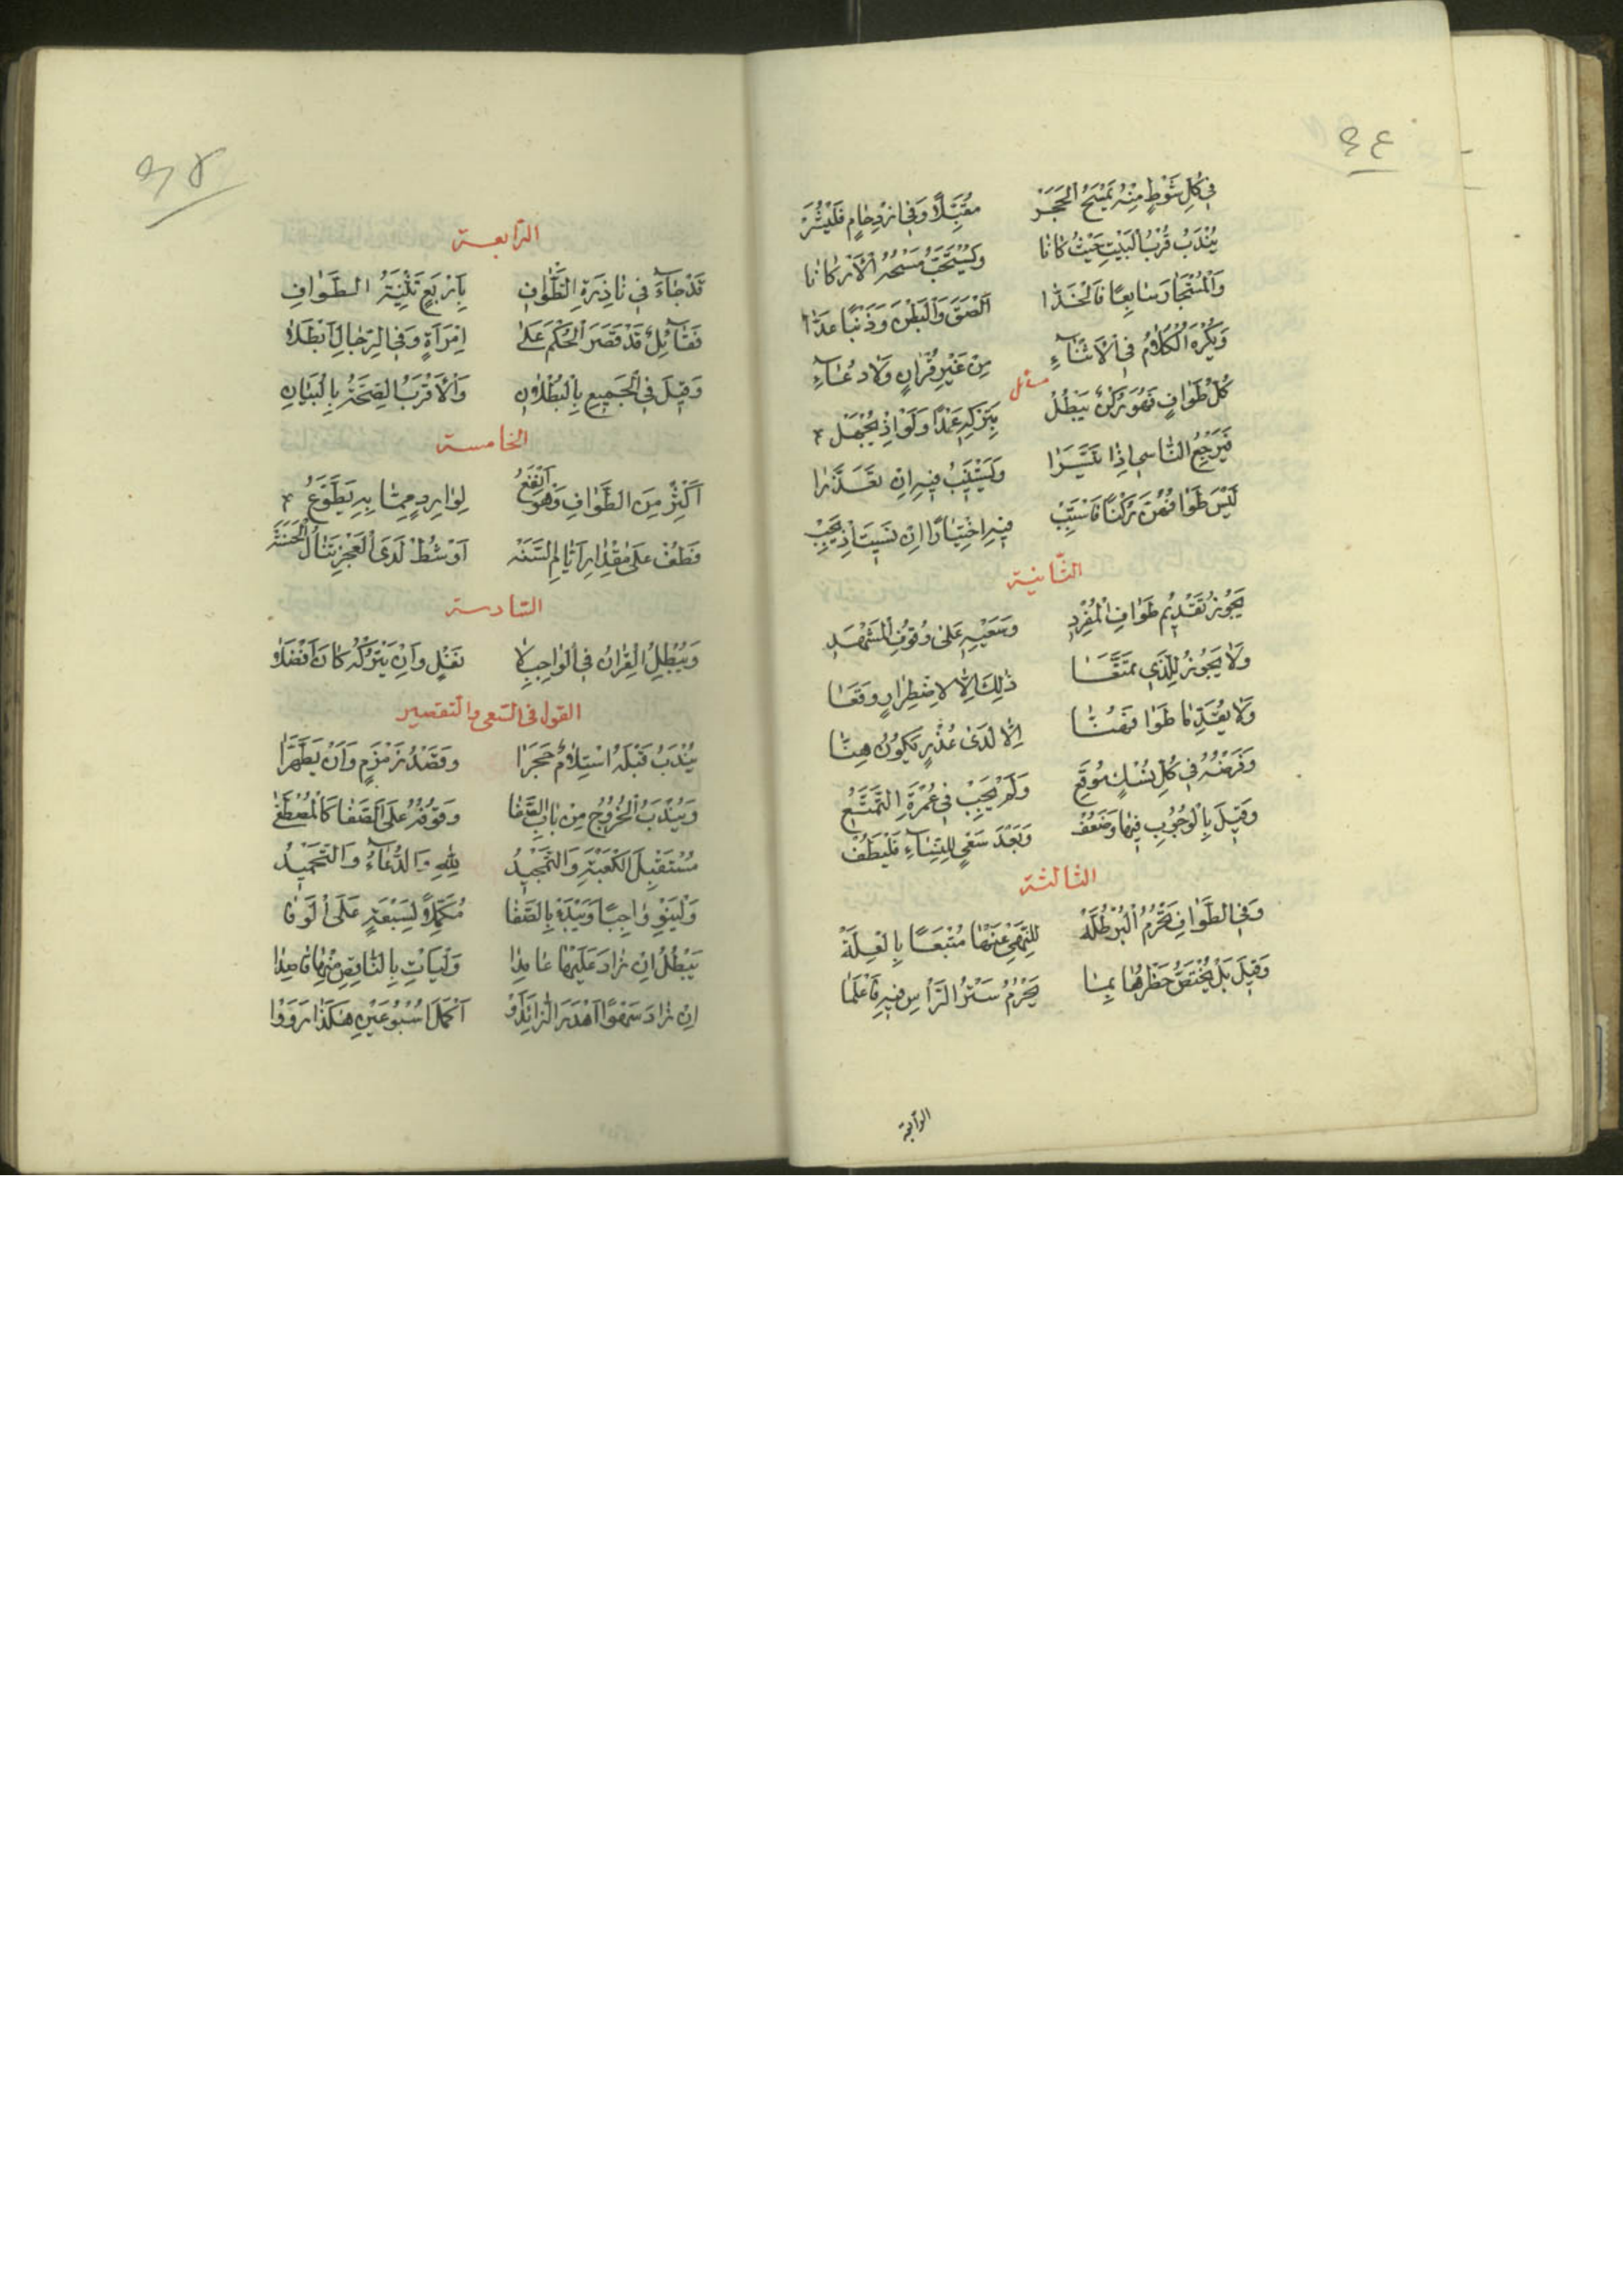 ٩٤
فِي كُلِّ شَوْطٍ مِنْهُ يَمْسَحُ الْحَجَرْ مُقَبِّلًا وَفِي ازْدِحَامٍ فَلْيُشِرْ
يُنْدَبُ قُرْبُ الْبَيْتِ حَيْثُ كَانَا وَيُسْتَحَبُّ مَسْحُهُ الْأَرْكَانَا
وَالْمُسْتَجَارَ سَابِعًا فَالْخَدَّا أَلْصَقَ وَالْبَطْنَ وَذَنْبًا عَدَّا
وَيُكْرَهُ الْكَلَامُ فِي الْأَثْنَاءِ مِنْ غَيْرِ قُرْآنٍ وَلَا دُعَاءِ
مسائل
كُلُّ طَوَافٍ فَهُوَ رُكْنٌ يَبْطُلُ بِتَرْكِهِ عَمْدًا وَلَوْ إِذْ يُجْهَلُ
فَيَرْجِعُ النَّاسِي إِذَا تَيَسَّرَا وَيَسْتَنِيبُ فِيهِ إِنْ تَعَذَّرَا
لَيْسَ طَوَافُهُنَّ رُكْنًا فَاسْتَنِبْ فِيهِ اخْتِيَارًا إِنْ نَسِيتَ إِذْ يَجِبْ
الثّانية
يَجُوزُ تَقْدِيمُ طَوَافِ الْمُفْرِدِ وَسَعْيِهِ عَلَى وُقُوفِ الْمَشْهَدِ
وَلَا يَجُوزُ لِلَّذِي تَمَتَّعَا ذَلِكَ إِلَّا لِاضْطِرَارٍ وَقَعَا
وَلَا يُقَدِّمَا طَوَافَهُنَّا إِلَّا لَدَى عُذْرٍ يَكُونُ هِنَّا
وَفَرْضُهُ فِي كُلِّ نُسْكٍ مُوقَعِ وَلَمْ يَجِبْ فِي عُمْرَةِ التَّمَتُّعِ
وَقِيلَ بِالْوُجُوبِ فِيهَا وَضَعُفْ وَبَعْدَ سَعْيٍ لِلنِّسَاءِ فَلْيَطُفْ
الثالثة
وَفِي الطَّوَافِ تَحْرُمُ الْبُرْطُلَّهْ لِلنَّهْيِ عَنْهَا مُتْبَعًا بِالْعِلَّهْ
وَقِيلَ بَلْ يَخْتَصُّ حَظْرُهَا بِمَا يَحْرُمُ سَتْرُ الرَّأْسِ فِيهِ فَاعْلَمَا
الرابعة
٩٥
الرّابعة
قَدْ جَاءَ فِي نَاذِرَةِ التَّطْوَافِ بِأَرْبَعٍ تَثْنِيَةُ الطَّوَافِ
فَقَائِلٌ قَدْ قَصَرَ الْحُكْمَ عَلَى امْرَأَةٍ وَفِي الرِّجَالِ أَبْطَلَا
وَقِيلَ فِي الْجَمِيعِ بِالْبُطْلَانِ وَالْأَقْرَبُ الصِّحَّةُ بِالْبَيَانِ
الخامسة
أَكْثِرْ مِنَ الطَّوَافِ وَهْوَ أَنْفَعُ لِوَارِدٍ مِمَّا بِهِ يَطَّوَّعُ
فَطُفْ عَلَى مِقْدَارِ أَيَّامِ السَّنَهْ أَوْ شُطْ لَدَى الْعَجْزِ تَنَالُ الْحَسَنَهْ
السّادسة
وَيُبْطِلُ الْقِرَانُ فِي الْوَاجِبِ لَا نَفْلٍ وَإِنْ يَتْرُكْهُ كَانَ أَفْضَلَا
القول في السّعي والتقصير
يُنْدَبُ قَبْلَهُ اسْتِلَامٌ حَجَرَا وَقَصْدُ زَمْزَمٍ وَأَنْ يَطَّهَّرَا
وَيُنْدَبُ الْخُرُوجُ مِنْ بَابِ الصَّفَا وَقُوفُهُ عَلَى الصَّفَا كَالْمُصْطَفَى
مُسْتَقْبِلَ الْكَعْبَةِ وَالتَّمْجِيدُ لِلَّهِ وَالدُّعَاءُ وَالتَّحْمِيدُ
وَلْيَنْوِ وَاجِبًا وَيَبْدَهْ بِالصَّفَا مُكَمِّلًا لِسَبْعَةٍ عَلَى الْوَفَا
يَبْطُلُ إِنْ زَادَ عَلَيْهَا عَامِدَا وَلْيَأْتِ بِالنَّاقِصِ مِنْهَا قَاصِدَا
إِنْ زَادَ سَهْوًا أَهْدَرَ الزَّائِدَ أَوْ أَكْمَلَ أُسْبُوعَيْنِ هَكَذَا رَوَوْا